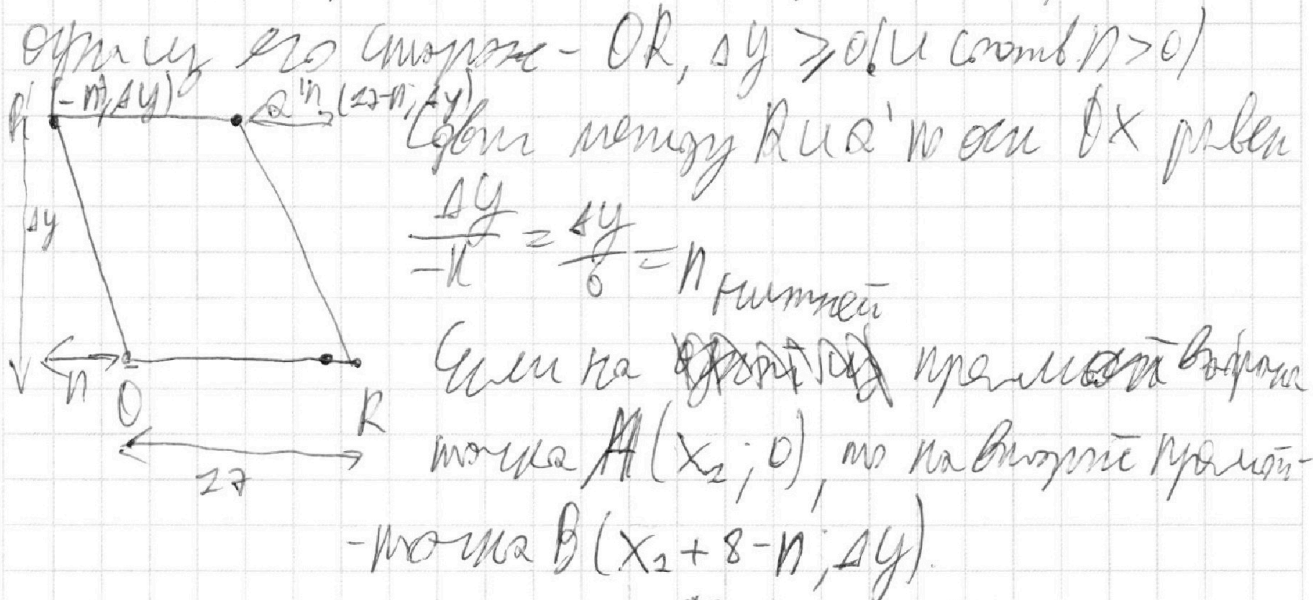 его стороне - OR, Δy ⩾ 0 (и соотв. n > 0)
(-n, Δy) Q' n (27-n, Δy)
Сдвиг между R и Q' по оси OX равен
Δy/-n = Δy/6 = n
Δy
нижней
Если на прямой выбрана
n O R
точка A (x₂; 0), то на второй прямой -
27
- точка B (x₂ + 8 - n; Δy).